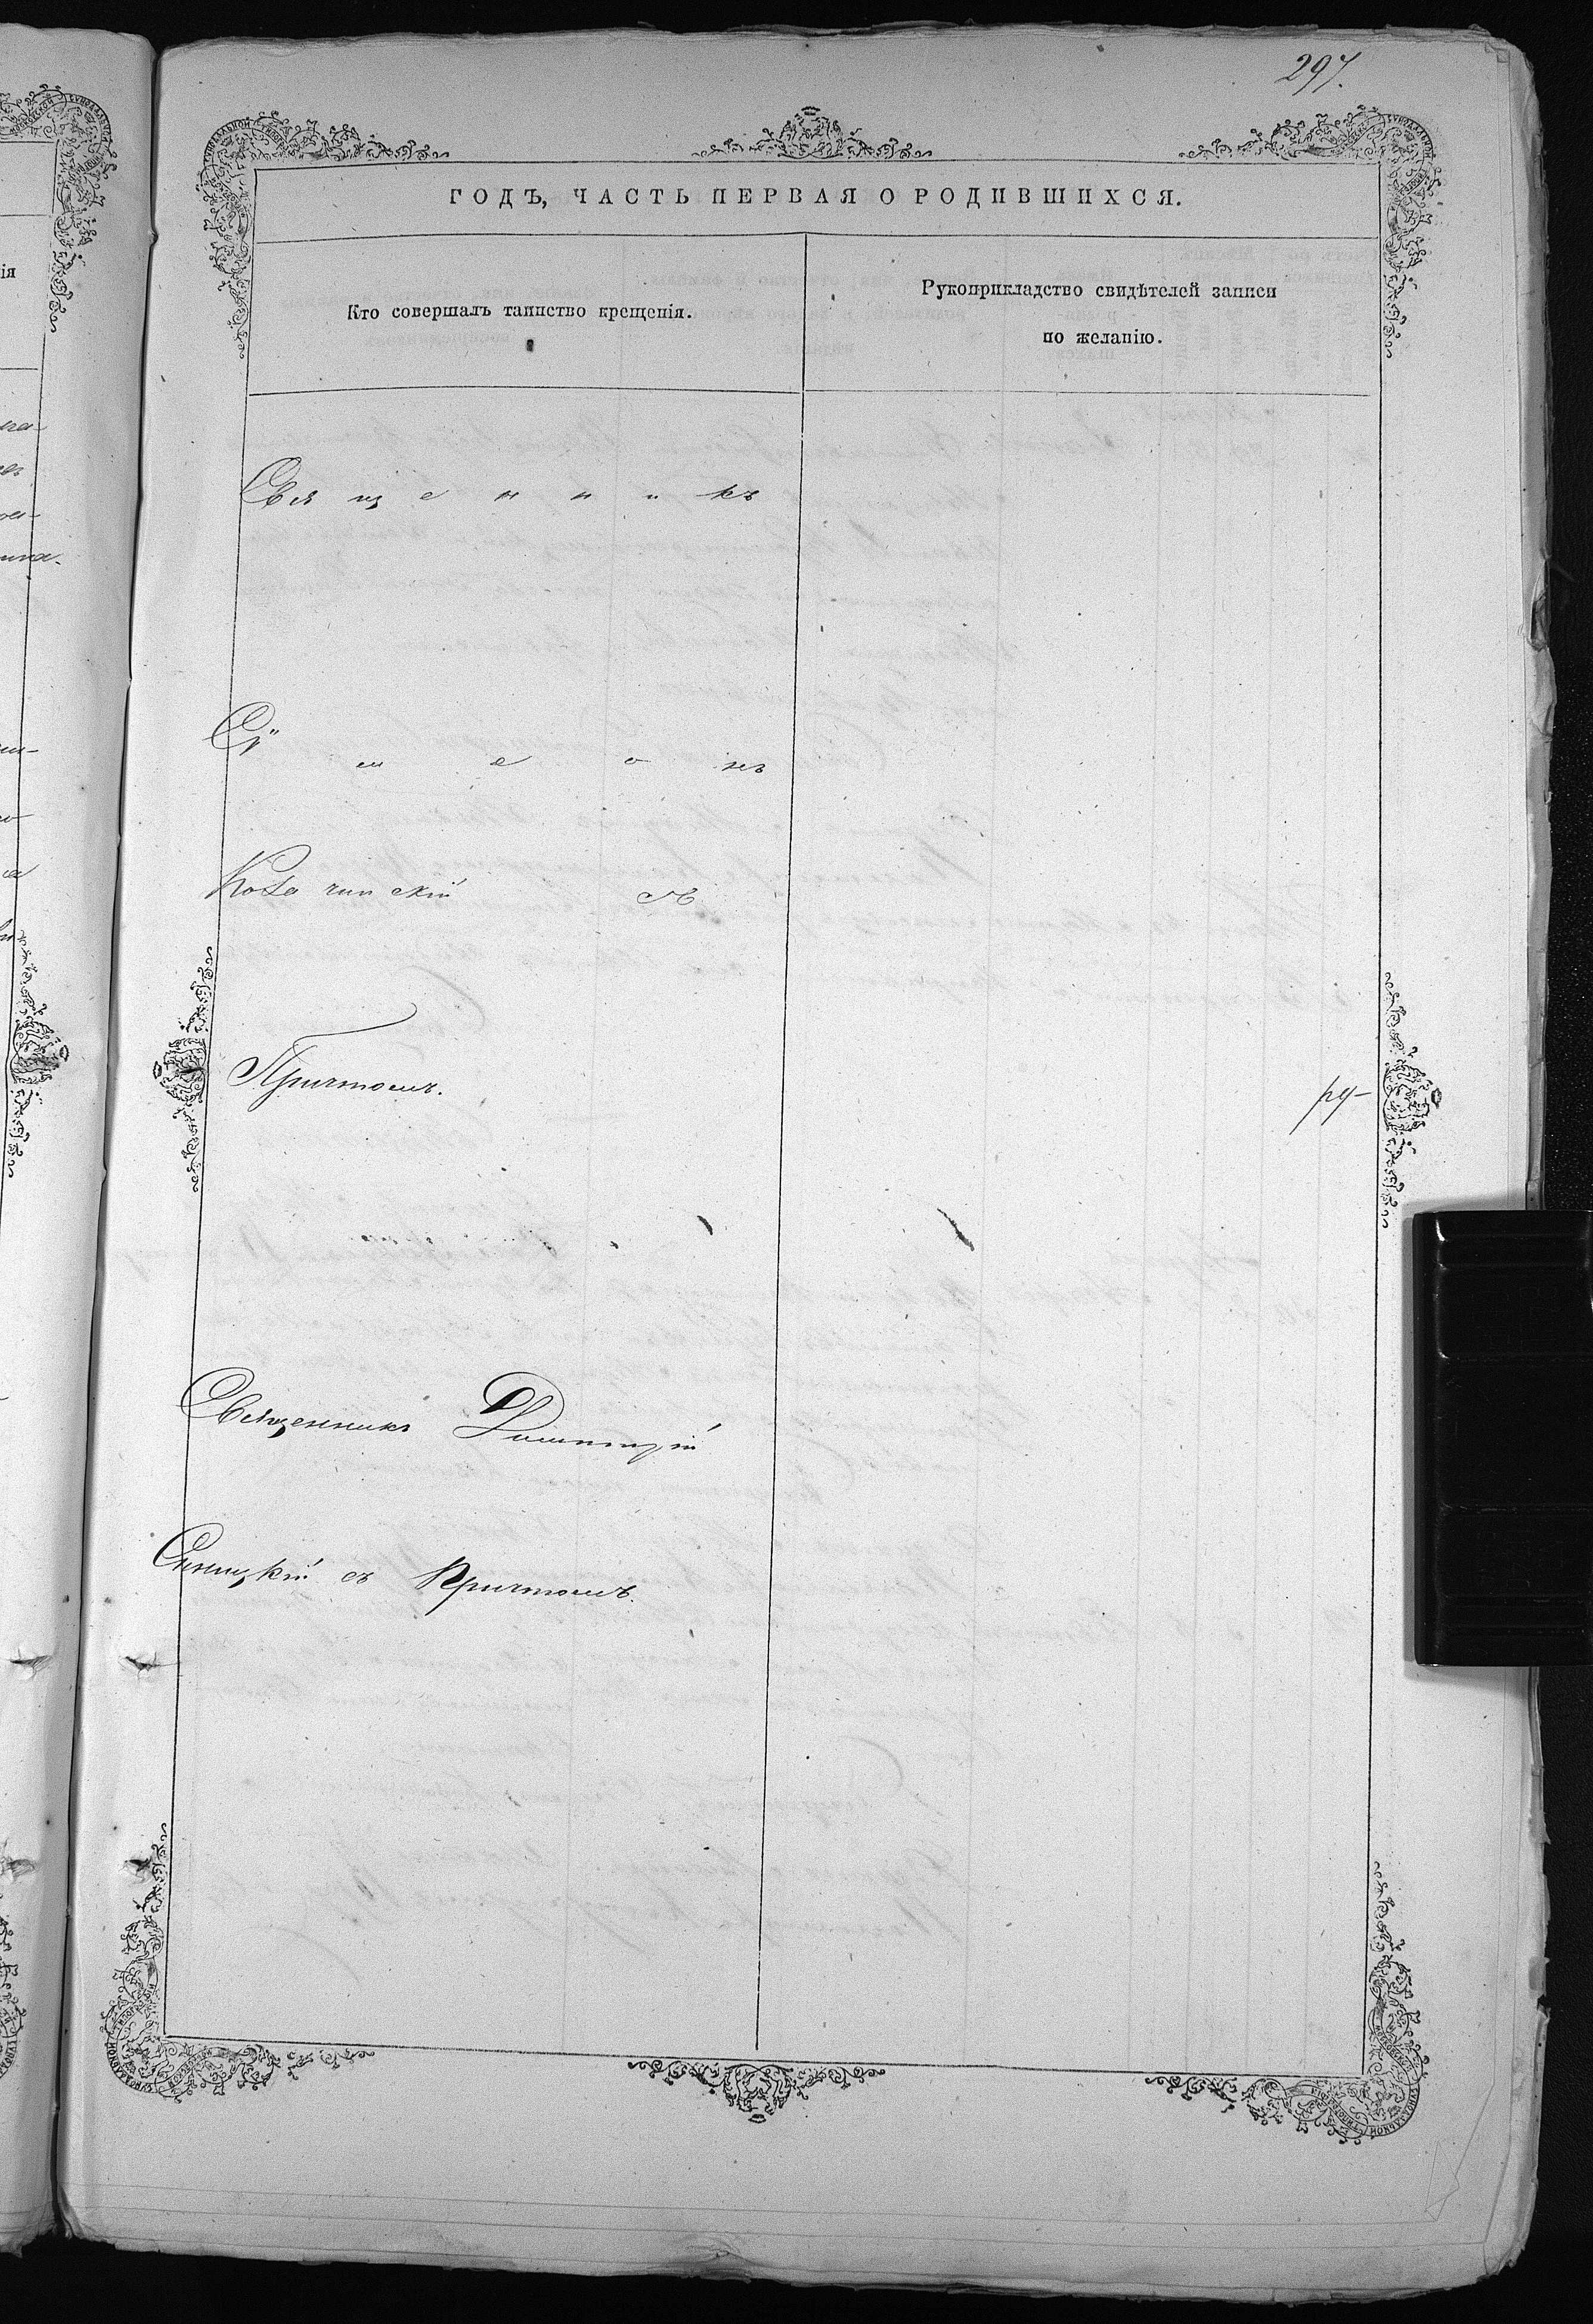 297.
ГОДЪ, ЧАСТЬ ПЕРВАЯ О РОДИВШИХСЯ.
Кто совершалъ таинство крещенія.
Рукоприкладство свидѣтелей записи
по желанію.
Священникъ
Сѵмеонъ
съ
Причтомъ.
ру-
Священникъ Димитрій
съ Причтомъ.